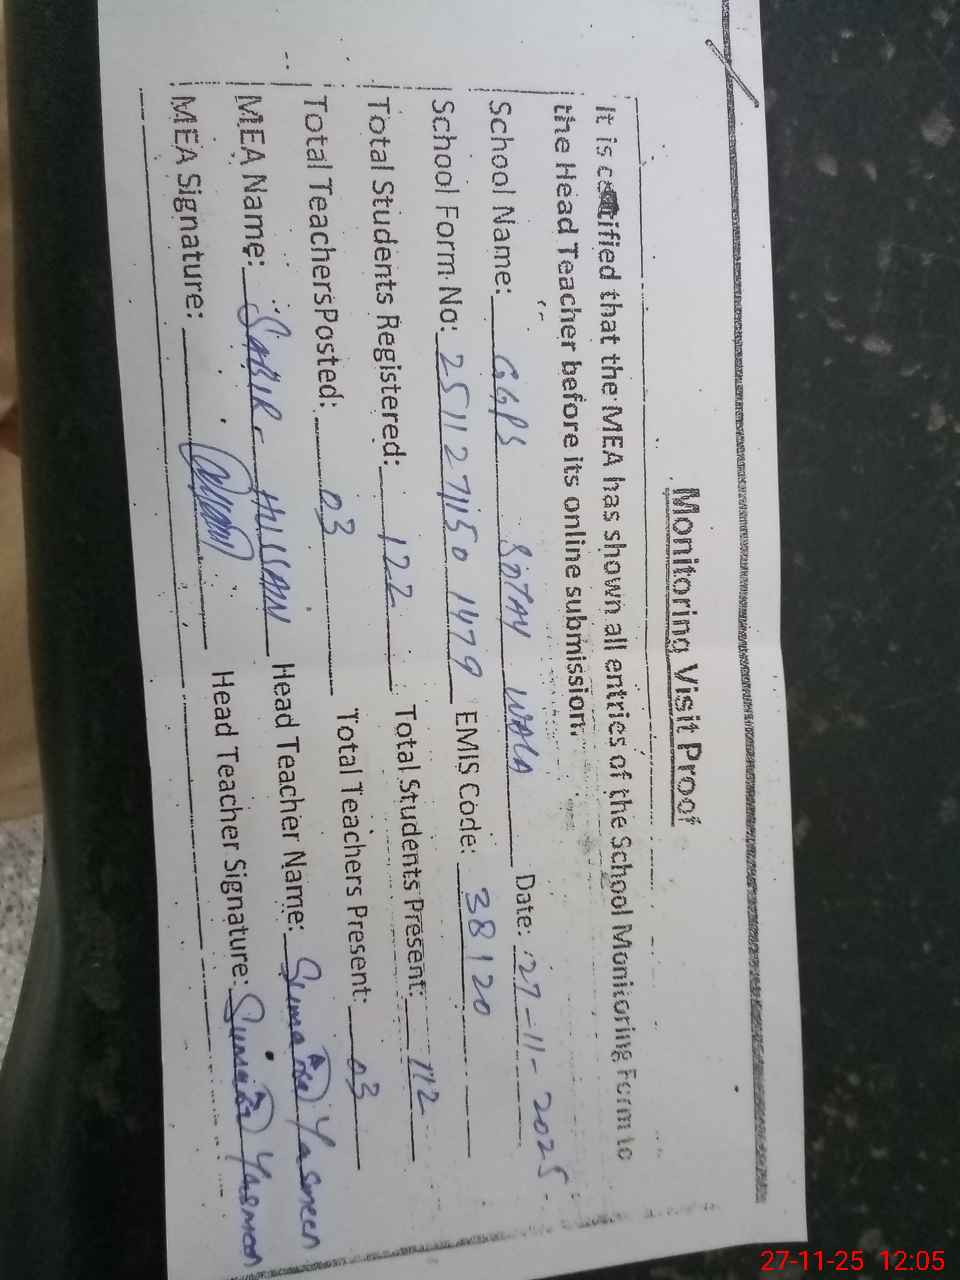 Monitoring Visit Proof
It is certified that the MEA has shown all entries of the School Monitoring Form to
the Head Teacher before its online submission.
School Name: GGPS BOTAY WALA Date: 27-11-2025
School Form No: 25112711501479 EMIS Code: 38120
Total Students Registered: 122 Total Students Present: 112
Total TeachersPosted: 03 Total Teachers Present: 03
MEA Name: SABIR HUSSAIN Head Teacher Name: Yasmeen
MEA Signature: Head Teacher Signature: Yasmeen
27-11-25 12:05